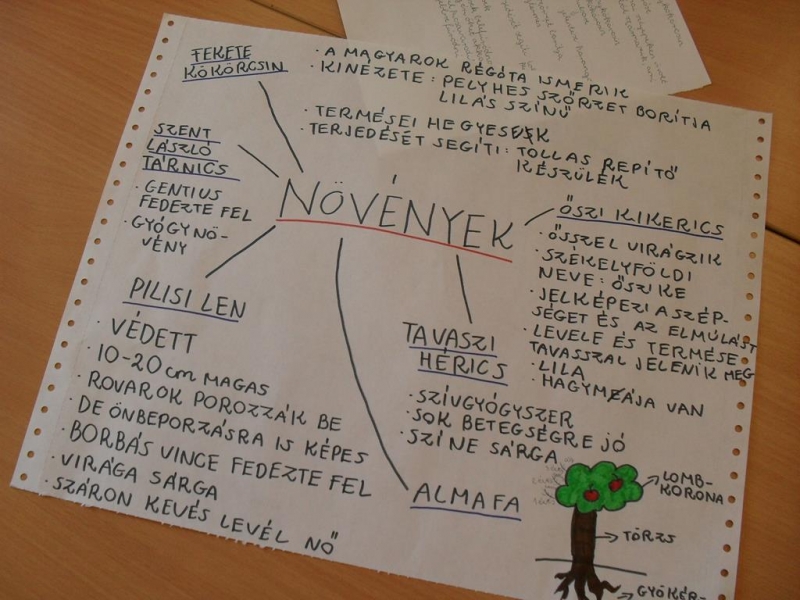 FEKETE
KÖKÖRCSIN
· A MAGYAROK RÉGÓTA ISMERIK
· KINÉZETE: PELYHES SZŐRZET BORÍTJA
LILÁS SZÍNŰ
· TERMÉSEI HEGYESEK
· TERJEDÉSÉT SEGÍTI: TOLLAS REPÍTŐ
KÉSZÜLÉK
SZENT
LÁSZLÓ
TÁRNICS
· GENTIUS
FEDEZTE FEL
· GYÓGYNÖ-
VÉNY
NÖVÉNYEK
ŐSZI KIKERICS
· ŐSSZEL VIRÁGZIK
· SZÉKELYFÖLDI
NEVE: ŐSZIKE
· JELKÉPEZI A SZÉP-
SÉGET ÉS AZ ELMÚLÁST
· LEVELE ÉS TERMÉSE
TAVASSZAL JELENIK MEG
· LILA
· HAGYMÁJA VAN
PILISI LEN
· VÉDETT
· 10-20 cm MAGAS
· ROVAROK POROZZÁK BE
DE ÖNBEPORZÁSRA IS KÉPES
· BORBÁS VINCE FEDEZTE FEL
· VIRÁGA SÁRGA
· SZÁRON KEVÉS LEVÉL NŐ
TAVASZI
HÉRICS
· SZÍVGYÓGYSZER
· SOK BETEGSÉGRE JÓ
· SZÍNE SÁRGA
ALMAFA
LOMB-
KORONA
TÖRZS
GYÖKÉR-